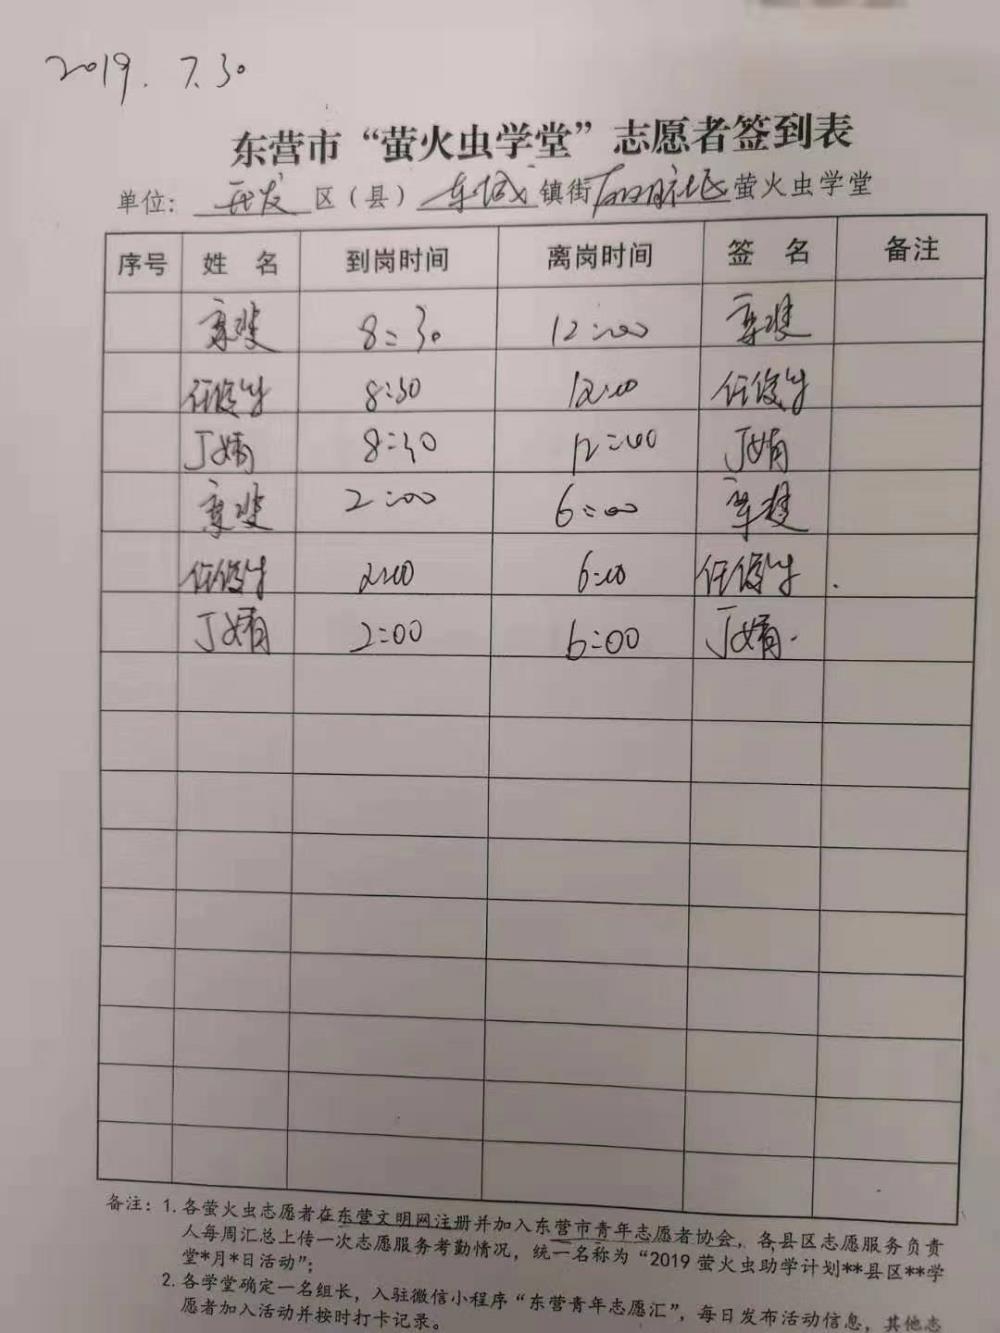 2019.7.30
东营市“萤火虫学堂”志愿者签到表
单位：开发区（县）东城镇街 萤火虫学堂
序号 姓 名 到岗时间 离岗时间 签 名 备注
8:30 12:00
任俊生 8:30 12:00 任俊生
丁婧 8:30 12:00 丁婧
2:00 6:00
任俊生 2:00 6:00 任俊生
丁婧 2:00 6:00 丁婧.
备注：1.各萤火虫志愿者在东营文明网注册并加入东营市青年志愿者协会，各县区志愿服务负责
人每周汇总上传一次志愿服务考勤情况，统一名称为“2019萤火虫助学计划**县区**学
堂*月*日活动”；
2.各学堂确定一名组长，入驻微信小程序“东营青年志愿汇”，每日发布活动信息，其他志
愿者加入活动并按时打卡记录。